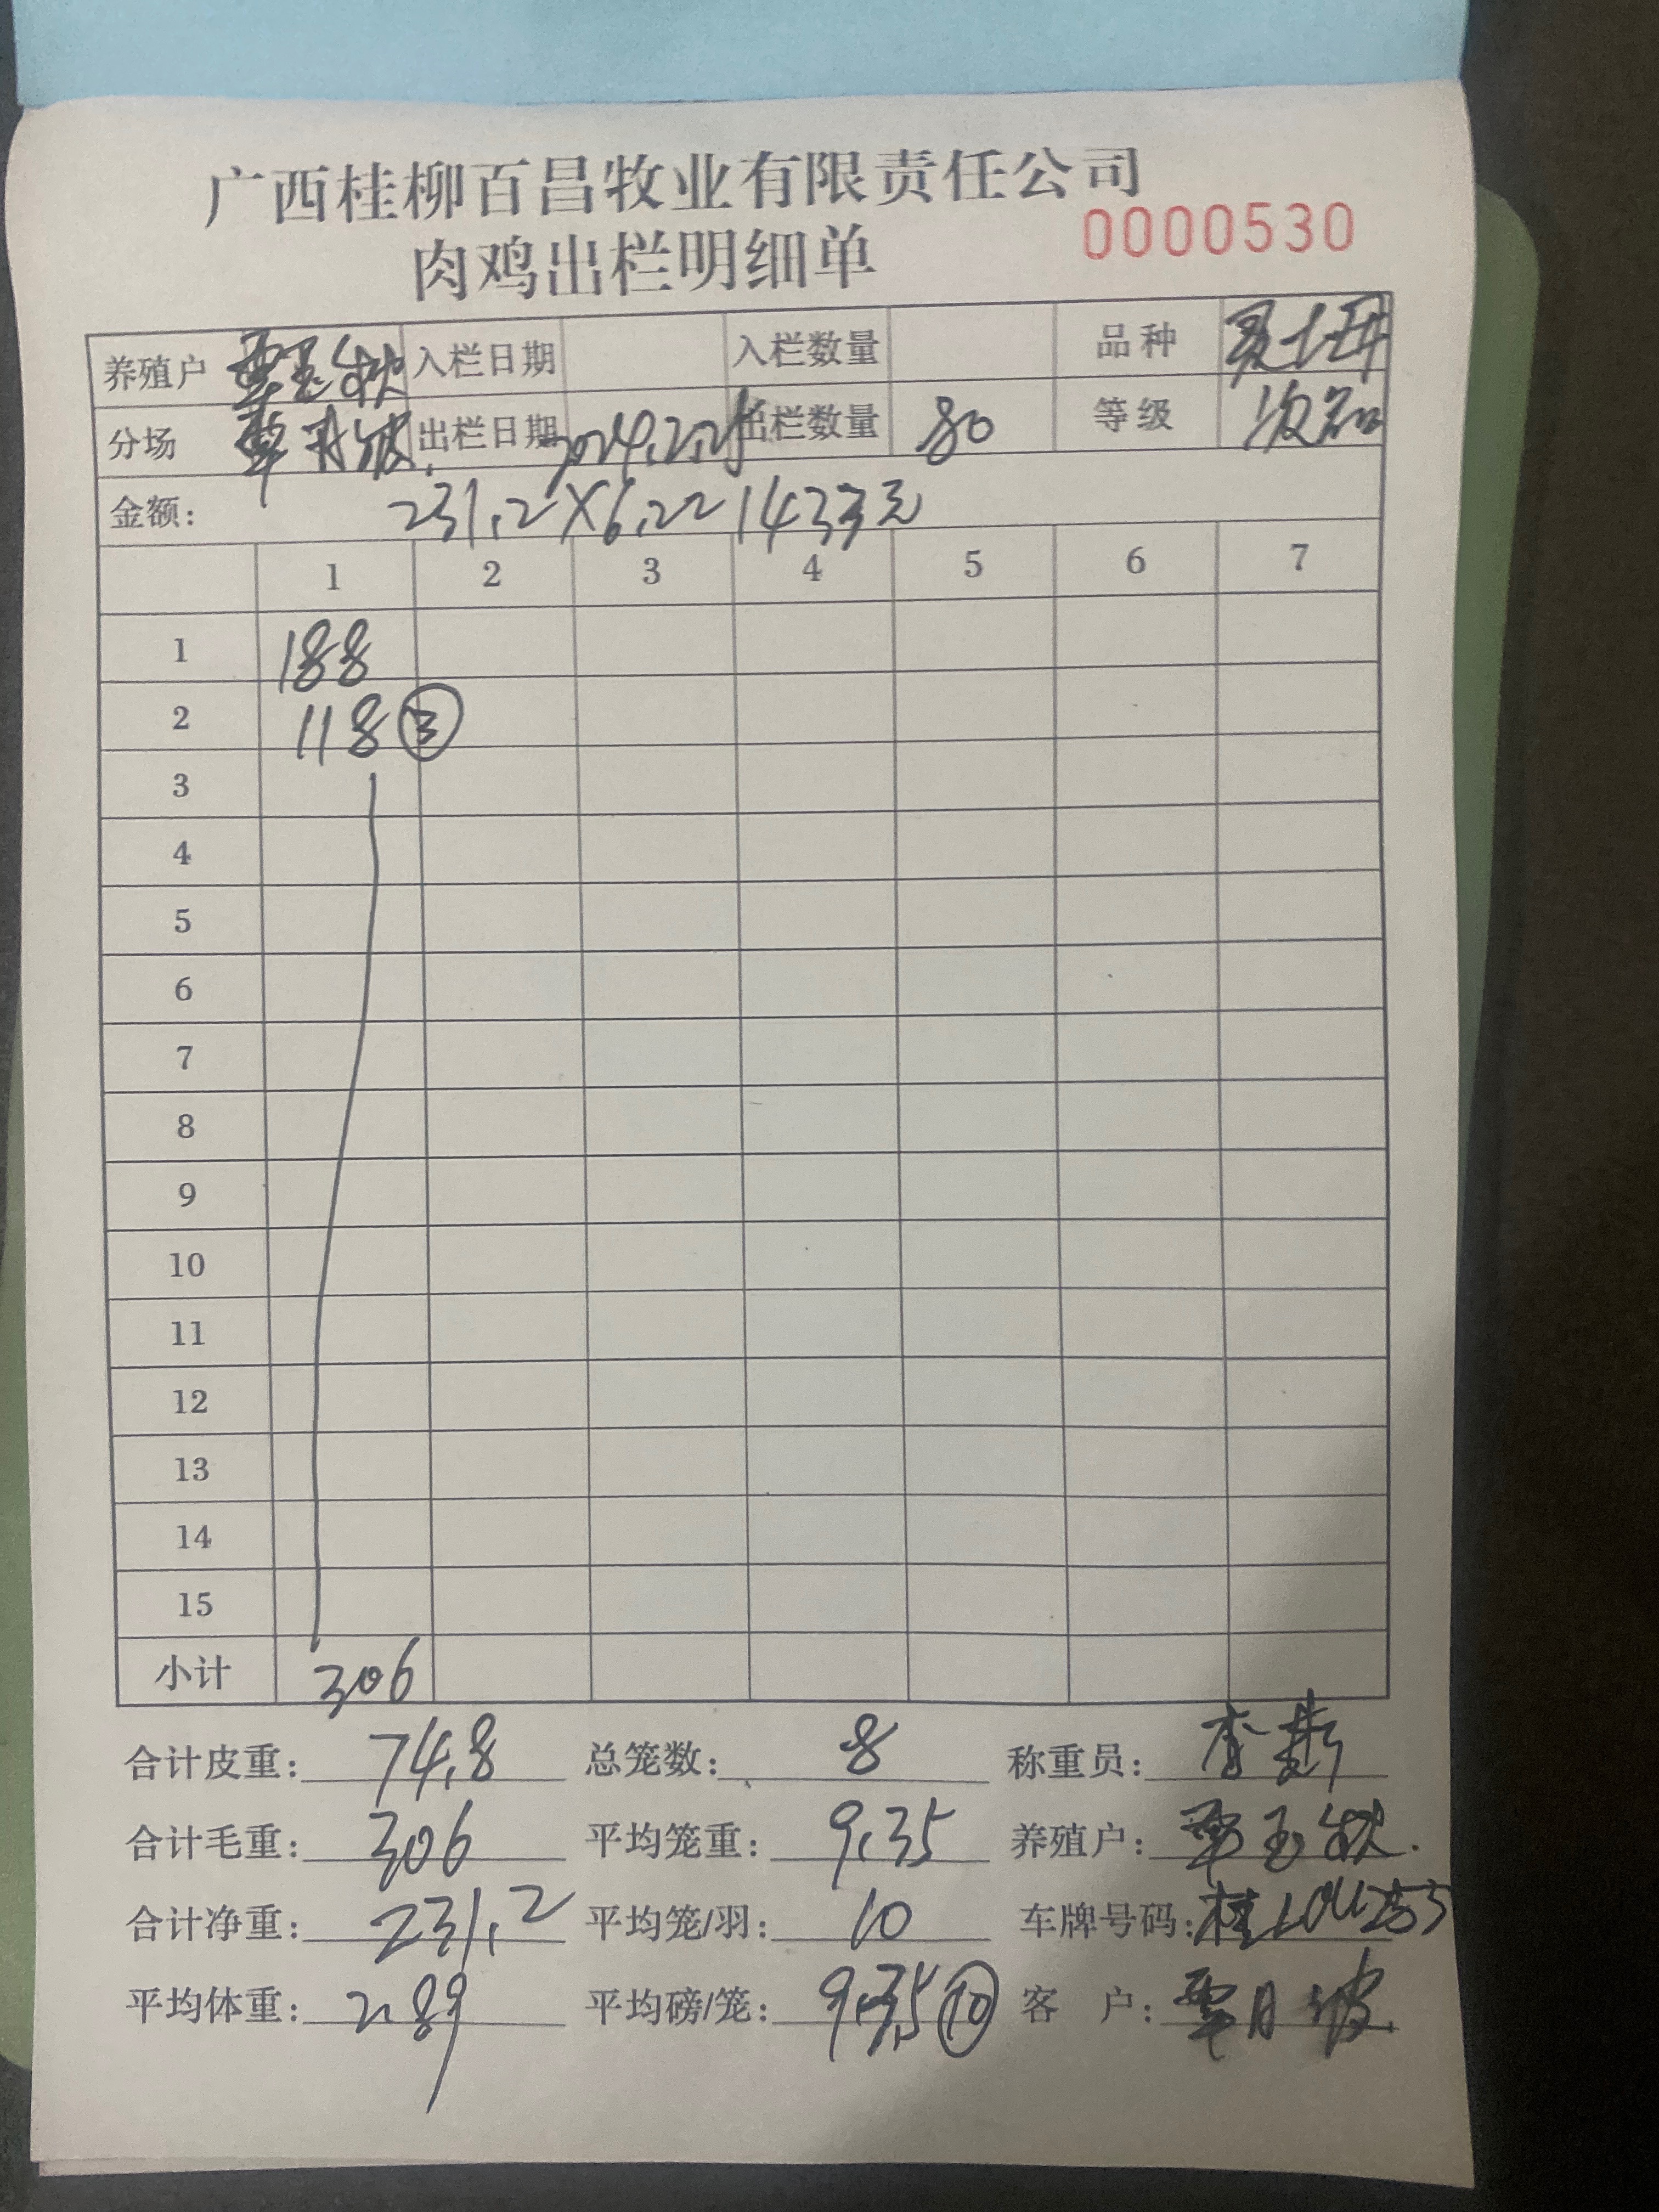 广西桂柳百昌牧业有限责任公司
肉鸡出栏明细单 0000530
养殖户 覃玉 入栏日期 入栏数量 品种
分场 覃月波 出栏日期 2024.2.2 出栏数量 80 等级 次品
金额: 231.2×6.2 1433元
1 2 3 4 5 6 7
1 188
2 118 ③
3
4
5
6
7
8
9
10
11
12
13
14
15
小计 306
合计皮重: 74.8 总笼数: 8 称重员: 李
合计毛重: 306 平均笼重: 9.35 养殖户: 覃玉
合计净重: 231.2 平均笼/羽: 10 车牌号码: 桂
平均体重: 2.89 平均磅/笼: 9.35 ⑩ 客 户: 覃月波